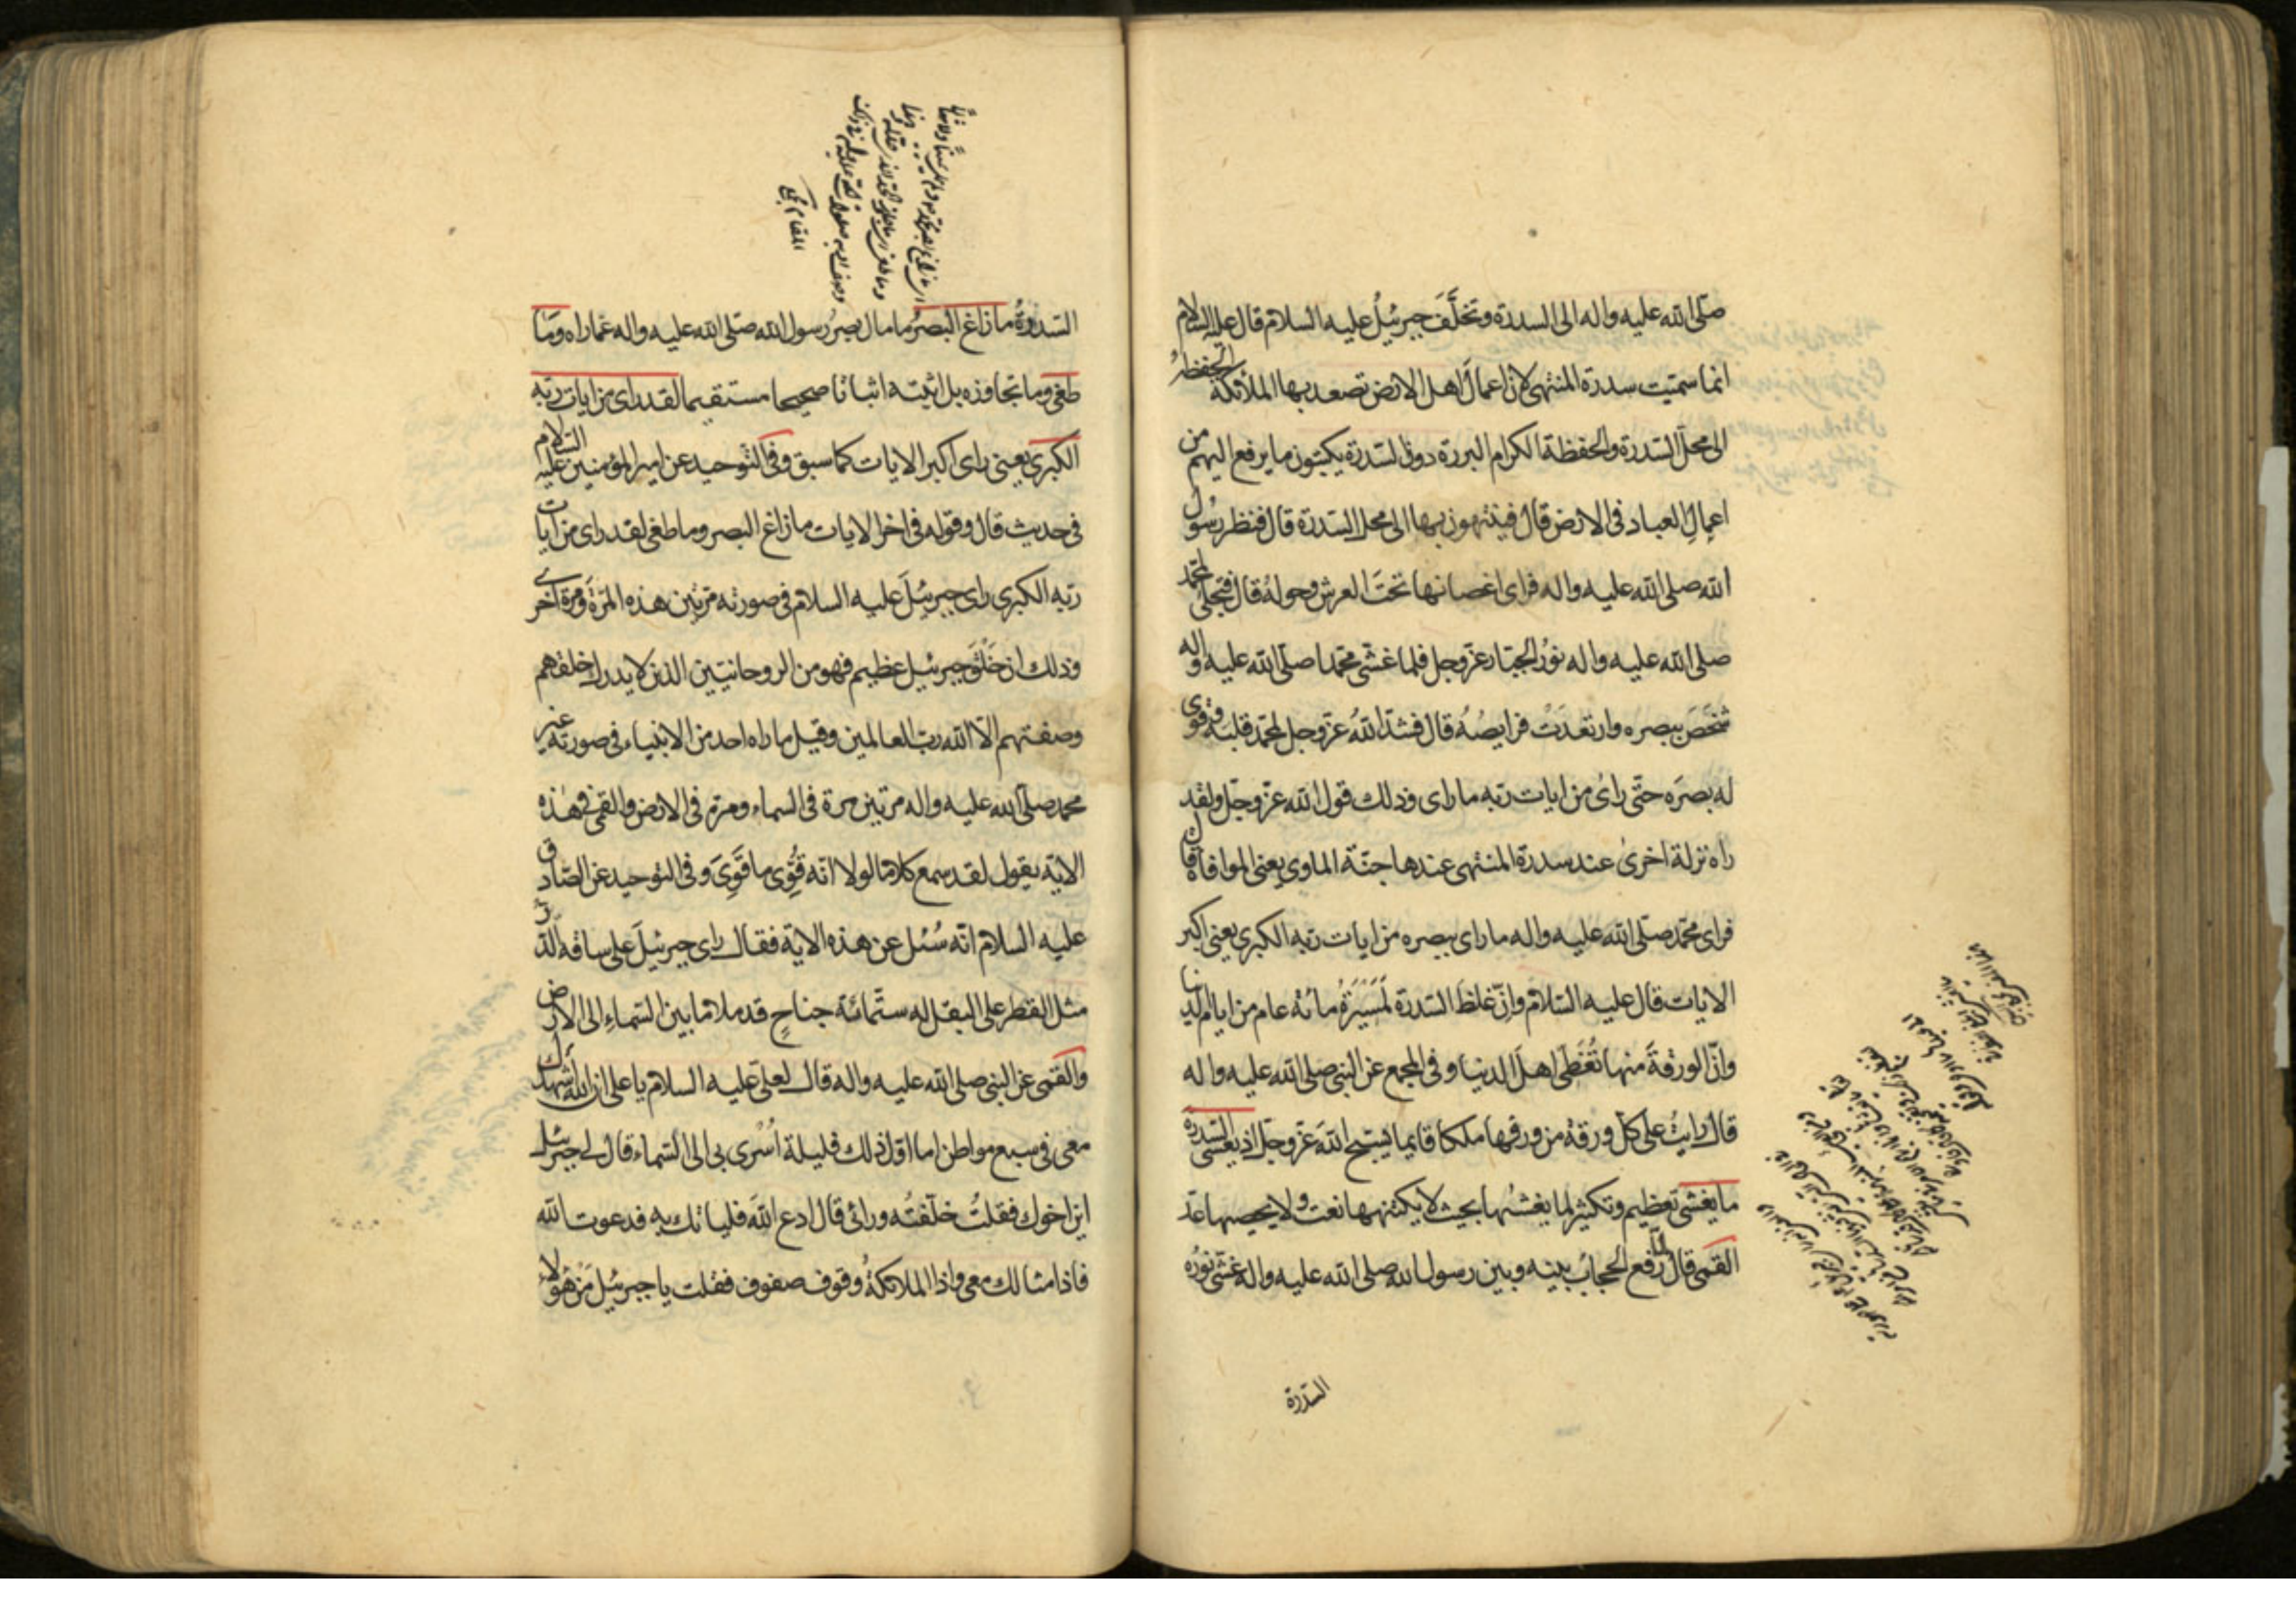 صلّى الله عليه واله الى السدرة وتخلَّفَ جبرئيلُ عليه السلام قال عليه السلام
انما سميت سدرة المنتهى لان اعمالَ اهل الارض تصعد بها الملائكة الحفظةُ
الى محل السّدرة والحفظة الكرام البررة دون السّدرة يكتبون ما يرفع اليهم من
اعمالِ العباد فى الارض قال فينتهون بها الى محل السّدرة قال فنظر رسُول
الله صلى الله عليه واله فراى اغصانها تحتَ العرش وحولهُ قال فتجلى لمحمّد
صلى الله عليه واله نورُ الجبّار عزّ وجل فلما غشى محمّدا صلّى الله عليه واله
شَخَصَ ببصره وارتعدَتْ فرايصُهُ قال فشدّ اللهُ عزّ وجل لمحمّد قلبَه وقوى
له بصرَه حتّى راىٰ من ايات ربّه ما راى وذلك قول الله عزّ وجلّ ولقد
راه نزلة اخرىٰ عند سدرة المنتهى عندها جنّة الماوى يعنى الموافاة قال
فراى محمّد صلّى الله عليه واله ما راى ببصره من ايات ربّه الكبرى يعنى اكبر
الايات قال عليه السّلام وانّ غلظَ السّدرة لمَسَيرَةُ مائة عام من ايام الدنيا
وانّ الورقةَ منها تُغَطّى اهلَ الدنيا وفى المجمع عن النبى صلى الله عليه واله
قال رايتُ على كل ورقة من ورقها ملكا قايما يسبّح اللهَ عزّ وجلّ اذ يغشى السّدرة
ما يغشى تعظيم وتكثير لما يغشٰها بحيث لا يكتنهها نعت ولا يحصيها عدّ
القمى قال لمّا رفع الحجابُ بينه وبين رسول الله صلى الله عليه واله غشى نورُه
السّدرة
السّدرةُ ما زاغ البَصَرُ ما مال بصرُ رسول الله صلّى الله عليه واله عمّا راه ومَا
طغى وما تجاوزه بل اثبته اثباتًا صحيحا مستقيما لقد راى من ايات ربّه
الكبرى يعنى راى اكبر الايات كما سبق وفى التوحيد عن امير المؤمنين عليه السّلام
فى حديث قال وقوله فى اخر الايات ما زاغ البصر وما طغى لقد راى من ايات
ربّه الكبرى راى جبرئيلَ عليه السلام فى صورته مرّتين هذه المرّة وَمرة اخرى
وذلك ان خَلْقَ جبرئيل عظيم فهو من الروحانيّين الذين لا يدرك خلقهم
وصفتهم الّا الله ربّ العالمين وقيل ما راه احد من الانبياء فى صورته غير
محمد صلّى الله عليه واله مرّتين مرة فى السماء ومرّة فى الارض والقمى فى هٰذه
الايّة يقول لقد سمع كلامًا لولا انّه قُوِّى ما قَوِىَ وفى التوحيد عن الصّادق
عليه السلام انّه سُئل عن هذه الاية فقال راى جبرئيلَ على ساقه الدّرّ
مثل القطر على البقل له ستّمائة جناحٍ قد ملا ما بين السّماءِ الى الارض
والقمى عن النبى صلى الله عليه واله قال لعلىّ عليه السلام يا على ان الله اشهدك
معى فى سبع مواطن اما اول ذلك فليلة اُسْرى بى الى السّماء قال لى جبرئيل
اين اخوك فقلتُ خلّفتُه ورائى قال ادع اللهَ فلياتك به فدعوت الله
فاذا مثالك معى واذا الملائكةُ وقوف صفوف فقلت يا جبرئيل مَن هٰؤلاء